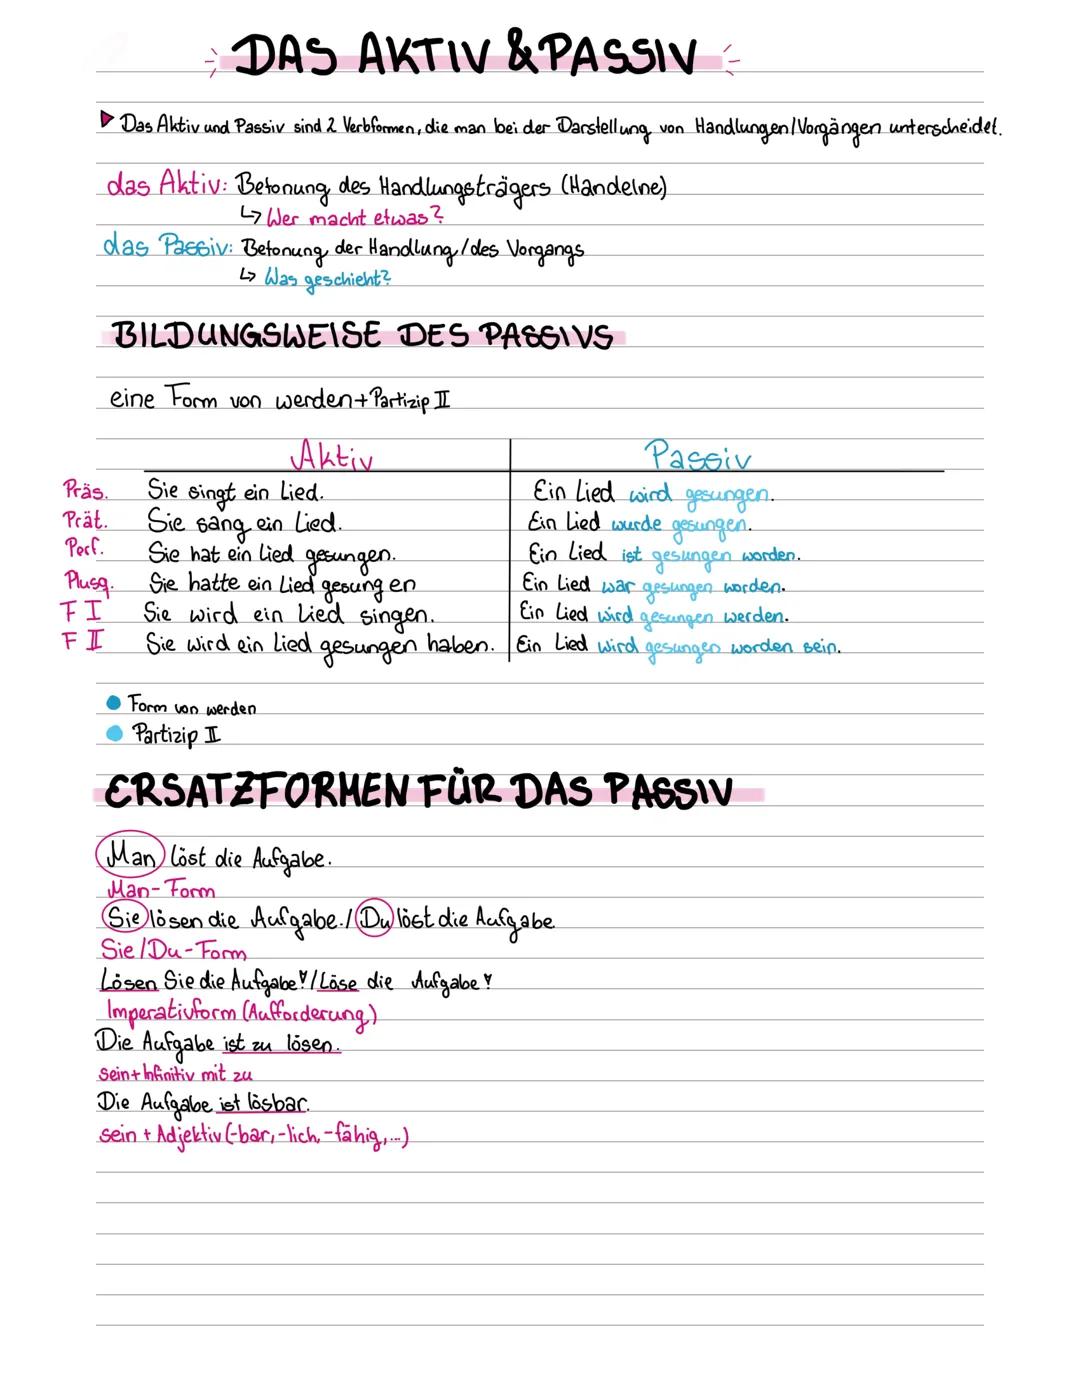 DAS AKTIV & PASSIV
Das Aktiv und Passiv sind 2 Verbformen, die man bei der Darstellung von Handlungen/Vorgängen unterscheidet.
das Aktiv: Betonung des Handlungsträgers (Handelne)
↳ Wer macht etwas?
das Passiv: Betonung der Handlung/des Vorgangs
↳ Was geschieht?
BILDUNGSWEISE DES PASSIVS
eine Form von werden+Partizip II
Aktiv Passiv
Präs. Sie singt ein Lied. Ein Lied wird gesungen.
Prät. Sie sang ein Lied. Ein Lied wurde gesungen.
Perf. Sie hat ein Lied gesungen. Ein Lied ist gesungen worden.
Plusq. Sie hatte ein Lied gesungen Ein Lied war gesungen worden.
F I Sie wird ein Lied singen. Ein Lied wird gesungen werden.
F II Sie wird ein Lied gesungen haben. Ein Lied wird gesungen worden sein.
Form von werden
Partizip II
ERSATZFORMEN FÜR DAS PASSIV
Man löst die Aufgabe.
Man-Form
Sie lösen die Aufgabe./Du löst die Aufgabe
Sie/Du-Form
Lösen Sie die Aufgabe!/Löse die Aufgabe!
Imperativform (Aufforderung)
Die Aufgabe ist zu lösen.
sein+Infinitiv mit zu
Die Aufgabe ist lösbar.
sein + Adjektiv (-bar, -lich, -fähig, ...)